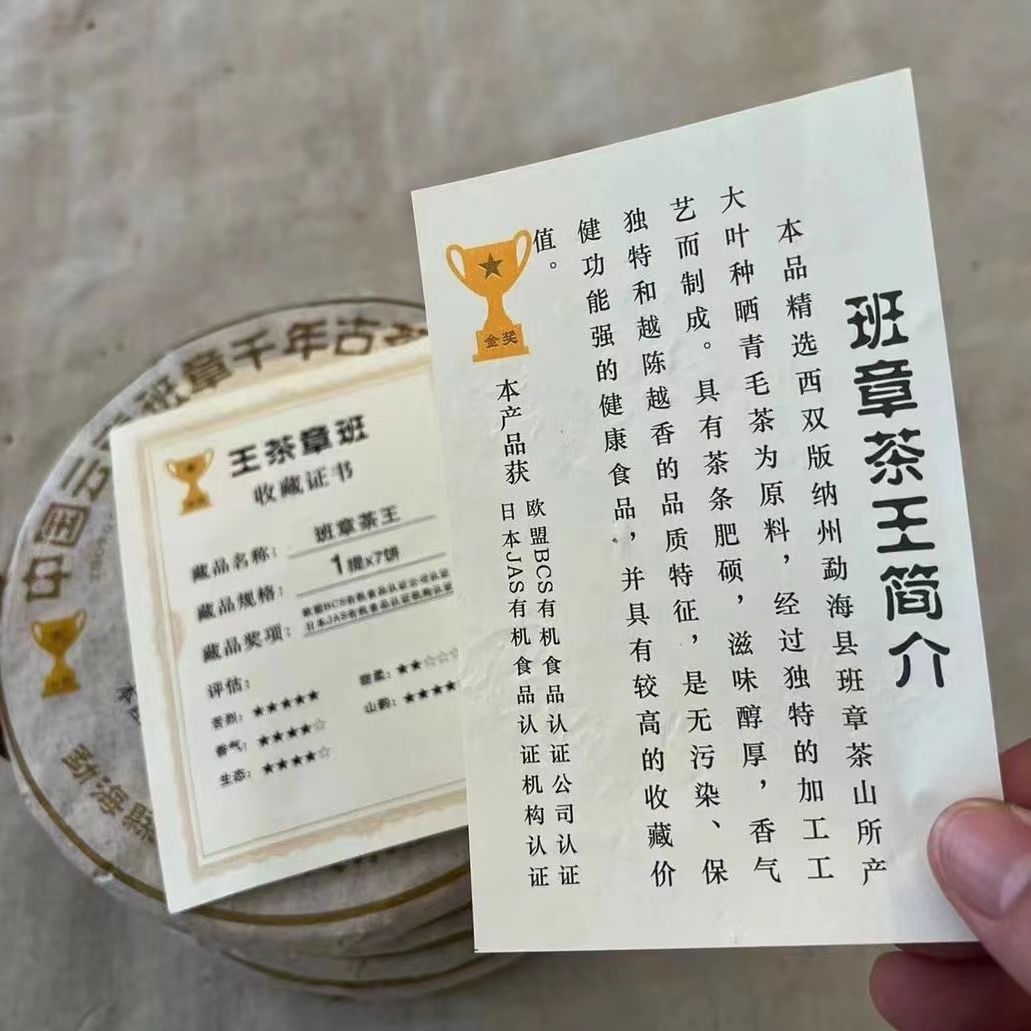 班章茶王简介
本品精选西双版纳州勐海县班章茶山所产
大叶种晒青毛茶为原料，经过独特的加工工
艺而制成。具有茶条肥硕，滋味醇厚，香气
独特和越陈越香的品质特征，是无污染、保
健功能强的健康食品，并具有较高的收藏价
值。
金奖
本产品获
欧盟BCS有机食品认证公司认证
日本JAS有机食品认证机构认证
王茶章班
收藏证书
藏品名称：班章茶王
藏品规格：1提x7饼
藏品奖项：欧盟BCS有机食品认证公司认证
日本JAS有机食品认证机构认证
评估：
苦烈：★★★★★
甜柔：★★☆☆
香气：★★★★☆
山韵：★★★★
生态：★★★★☆
中国
班章千年古
勐海縣